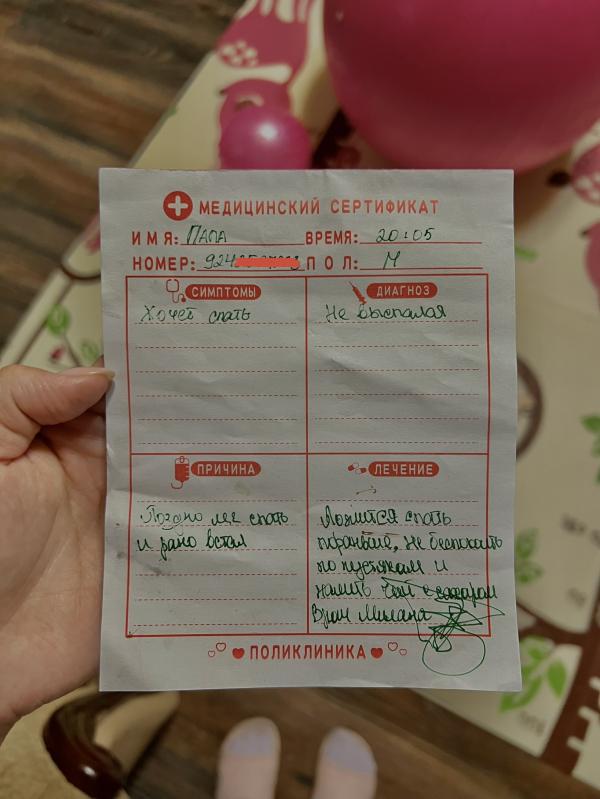 МЕДИЦИНСКИЙ СЕРТИФИКАТ
ИМЯ: ПАПА ВРЕМЯ: 20:05
НОМЕР: 924 ПОЛ: М
СИМПТОМЫ
Хочет спать
ДИАГНОЗ
Не выспался
ПРИЧИНА
Поздно лег спать
и рано встал
ЛЕЧЕНИЕ
Ложится спать
пораньше, не беспокоить
по пустякам и
налить чай с сахаром
Врач Милана
ПОЛИКЛИНИКА